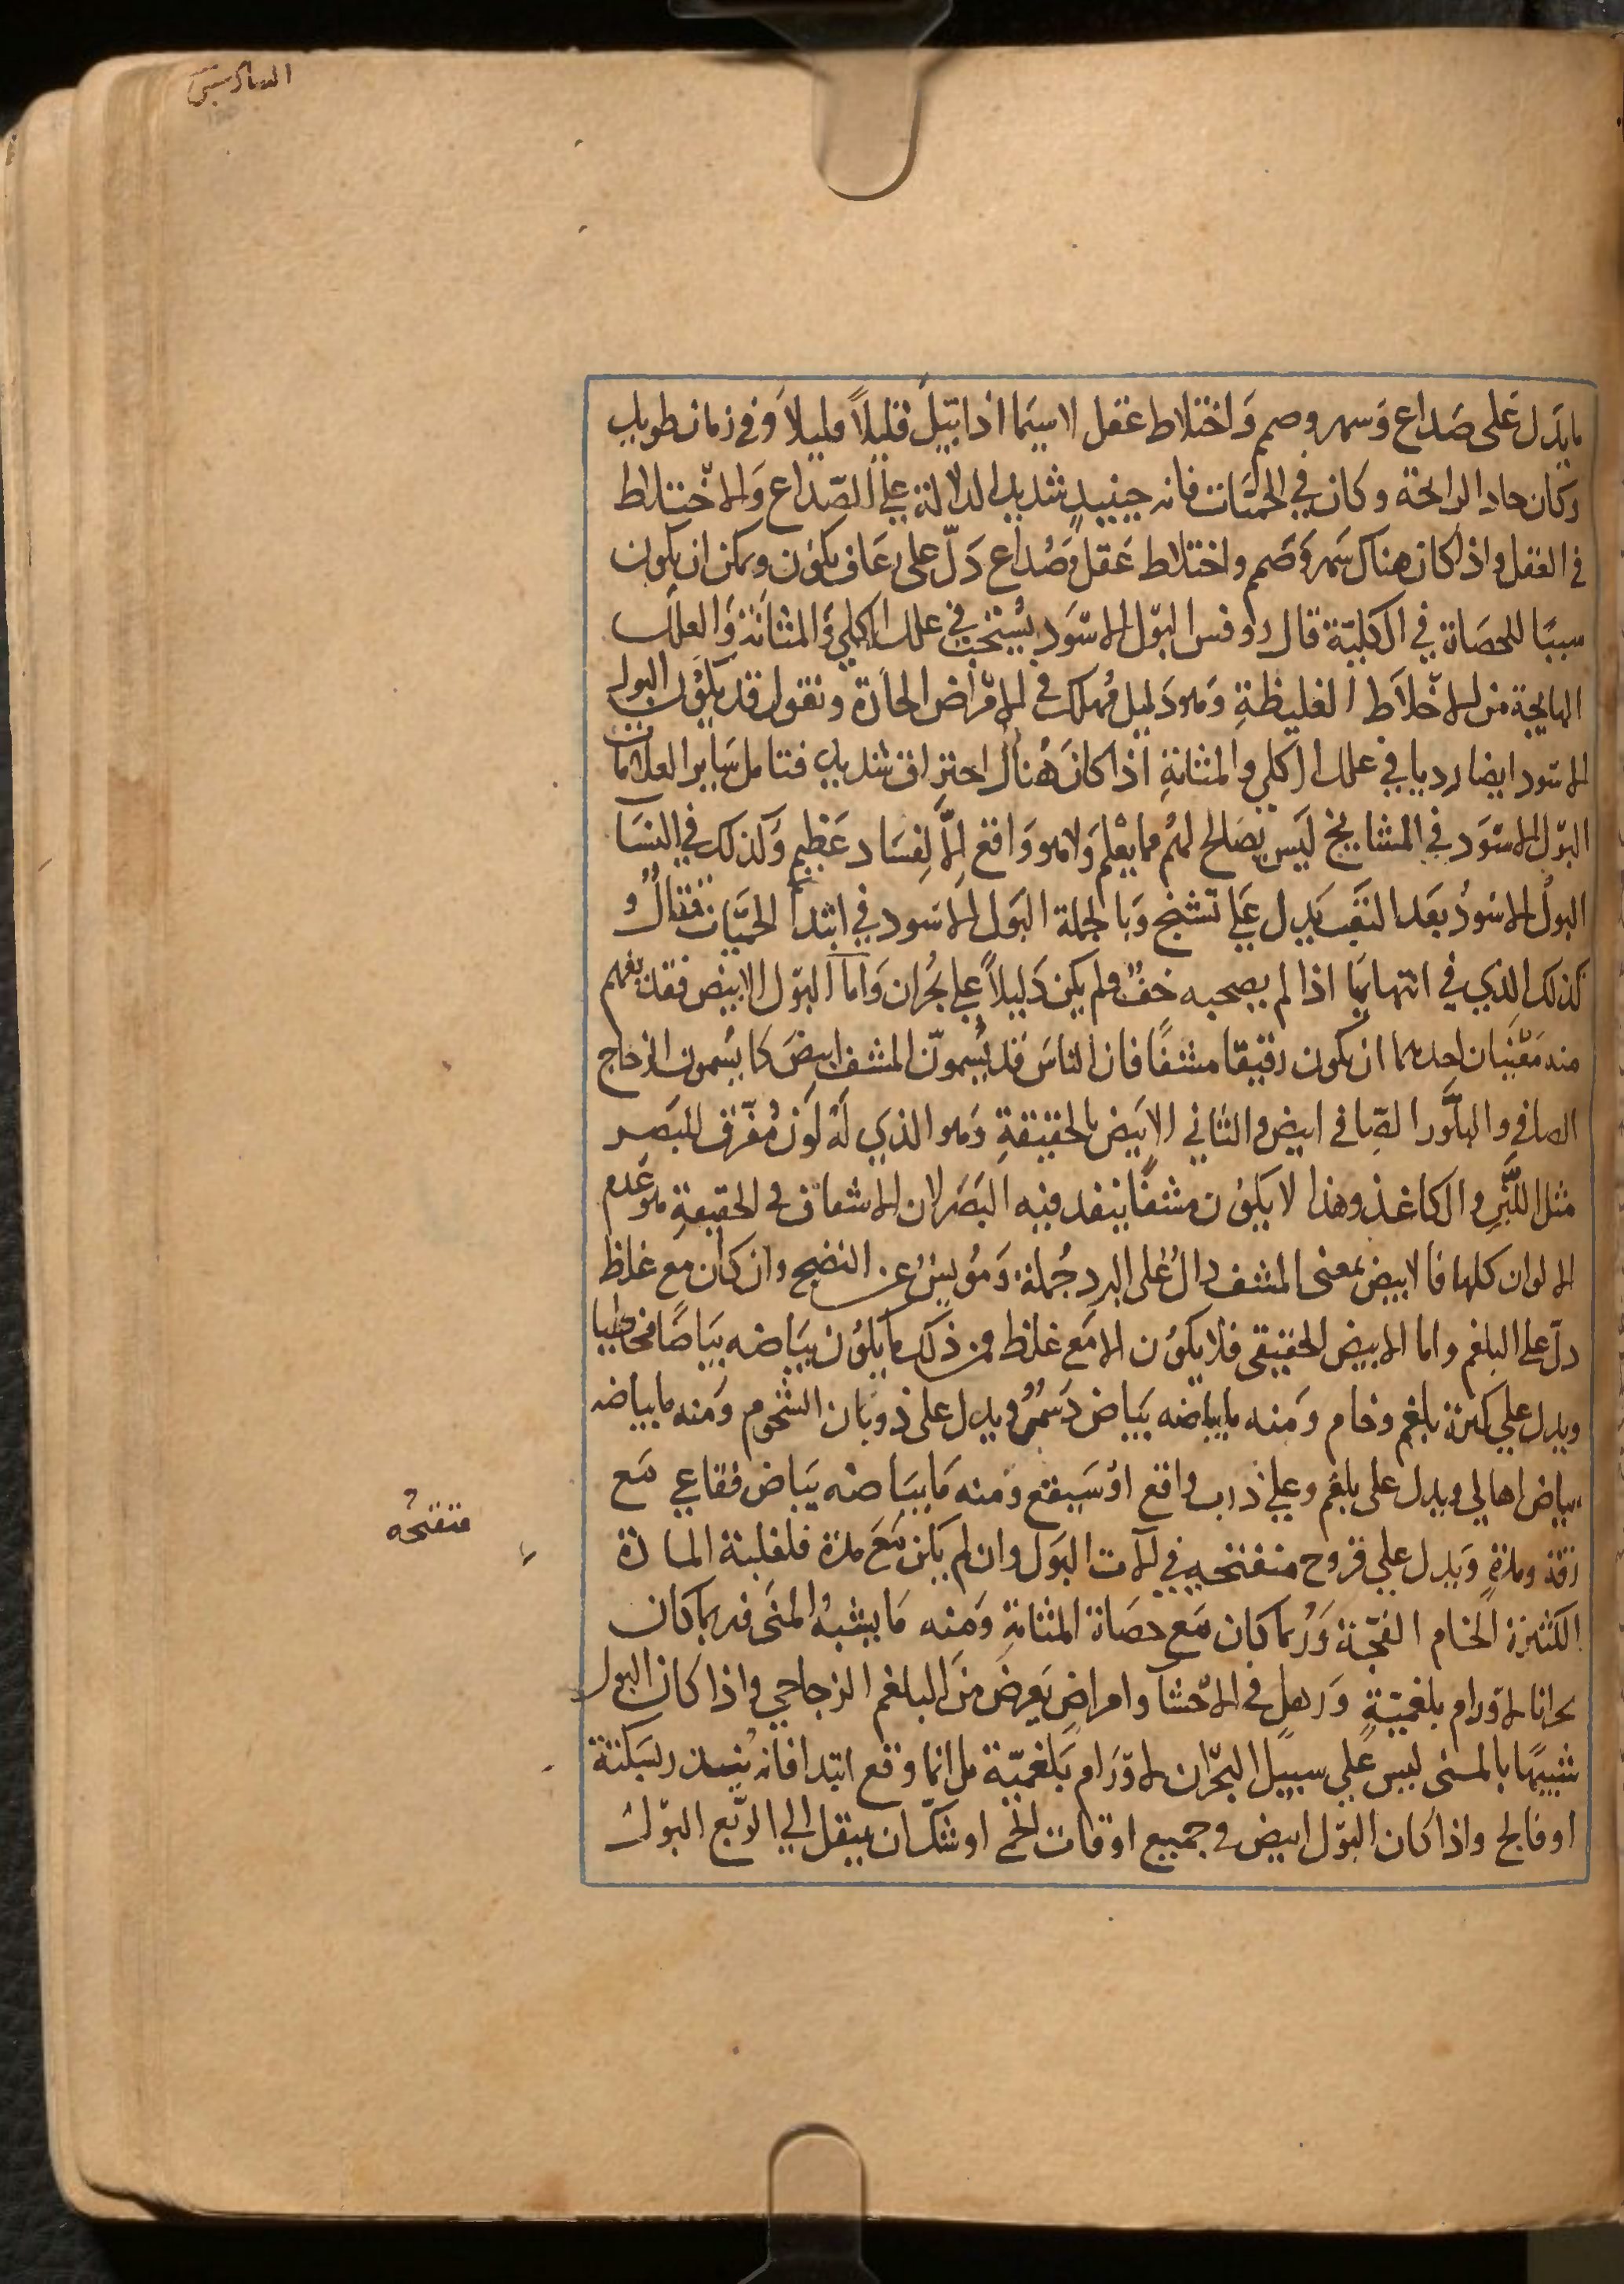 السادس
ما يدل على صداع وسهر وصمم واختلاط عقل لاسيما اذا تبيل قليلاً قليلاً وفي زمان طويل
وكان حاد الرايحة وكان في الحميات فانه حينيذ شديد الدلالة على الصّداع والاختلاط
في العقل واذا كان هناك سهر وصمم واختلاط عقل وصداع دلّ على رعاف يكون ويمكن ان يكون
سببًا للحصاة في الكلية قال روفس البول الاسود يُستحب في علل الكلي والمثانة والعلل
الهايجة من الاخلاط الغليظة وهو دليل مهلك في الامراض الحادة ونقول قد يكون البول
الاسود ايضا رديا في علل الكلي والمثانة اذا كان هناك احتراق شديد فتامل ساير العلامات
البول الاسود في المشايخ ليس يصلح لهم مما يعلم ولا هو واقع الا لفساد عظيم وكذلك في النسا
البول الاسود بعد التعب يدل على تشنج وبالجملة البول الاسود في ابتدا الحميات قتّال و
كذلك الذي في انتهايها اذا لم يصحبه خفّ ولم يكن دليلاً على بحران واما البول الابيض فقد يفهم
منه معنيان احدهما ان يكون رقيقا مشفًا فان الناس قد يسمون المشف ابيض كما يسمون الزجاج
الصافي والبلور الصّافي ابيض والثاني الابيض بالحقيقة وهو الذي له لون مفرق للبصر
مثل اللبن والكاغذ وهذا لا يكون مشفًا ينفد فيه البصر لان الاشفاف في الحقيقة هو عدم
الالوان كلها فالابيض بمعنى المشف دال على البرد جملة ومويس عن النضج وان كان مع غلظ
دل على البلغم واما الابيض الحقيقي فلا يكون الا مع غلظ فمن ذلك ما يكون بياضه بياضًا مخاطيا
ويدل على كثرة بلغم وخام ومنه ما بياضه بياض دسمي ويدل على ذوبان الشحوم ومنه ما بياضه
بياض اهالي ويدل على بلغم وعلى ذرب واقع او سيقع ومنه ما بياضه بياض فقاعي مع
رقة ومدة ويدل على قروح منفتحه في الات البول وان لم يكن مع مدة فلغلبة المادة
الكثيرة الخام الفجة وربما كان مع حصاة المثانة ومنه ما يشبه المني فربما كان
بحرانا لاورام بلغمية ورهل في الاحشا وامراض يعرض من البلغم الزجاجي واذا كان البول
شبيهًا بالمني ليس على سبيل البحران لاورام بلغمية بل انما وقع ابتدا فانه ينذر بسكتة
او فالج واذا كان البول ابيض في جميع اوقات الحمى اوشك ان ينتقل الى الربع البول
متفتحه